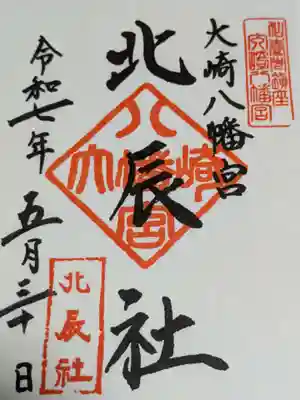 大崎八幡宮
北辰社
令和七年
五月三十日
八
大幡崎
宮
北辰社